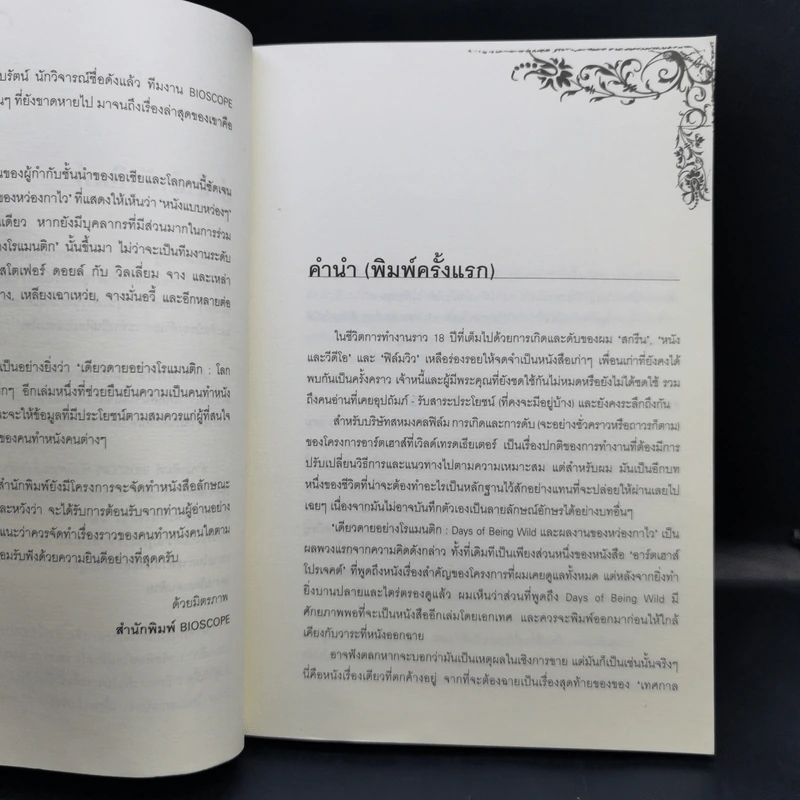 บรัตน์ นักวิจารณ์ชื่อดังแล้ว ทีมงาน BIOSCOPE
นๆ ที่ยังขาดหายไป มาจนถึงเรื่องล่าสุดของเขาคือ
นของผู้กำกับชั้นนำของเอเชียและโลกคนนี้ชัดเจน
ของหว่องกาไว' ที่แสดงให้เห็นว่า 'หนังแบบหว่องๆ'
เดียว หากยังมีบุคลากรที่มีส่วนมากในการร่วม
างโรแมนติก' นั้นขึ้นมา ไม่ว่าจะเป็นทีมงานระดับ
สโตเฟอร์ ดอยล์ กับ วิลเลี่ยม จาง และเหล่า
าง, เหลียงเฉาเหว่ย, จางมั่นอวี้ และอีกหลายต่อ
เป็นอย่างยิ่งว่า 'เดียวดายอย่างโรแมนติก : โลก
ักๆ อีกเล่มหนึ่งที่ช่วยยืนยันความเป็นคนทำหนัง
ะจะให้ข้อมูลที่มีประโยชน์ตามสมควรแก่ผู้ที่สนใจ
ของคนทำหนังคนต่างๆ
สำนักพิมพ์ยังมีโครงการจะจัดทำหนังสือลักษณะ
ละหวังว่า จะได้รับการต้อนรับจากท่านผู้อ่านอย่าง
แนะว่าควรจัดทำเรื่องราวของคนทำหนังคนใดตาม
อมรับฟังด้วยความยินดีอย่างที่สุดครับ
ด้วยมิตรภาพ
สำนักพิมพ์ BIOSCOPE
คำนำ (พิมพ์ครั้งแรก)
ในชีวิตการทำงานราว 18 ปีที่เต็มไปด้วยการเกิดและดับของผม 'สกรีน', 'หนัง
และวีดีโอ' และ 'ฟิล์มวิว' เหลือร่องรอยให้จดจำเป็นหนังสือเก่าๆ เพื่อนเก่าที่ยังคงได้
พบกันเป็นครั้งคราว เจ้าหนี้และผู้มีพระคุณที่ยังชดใช้กันไม่หมดหรือยังไม่ได้ชดใช้ รวม
ถึงคนอ่านที่เคยอุปถัมภ์ - รับสาระประโยชน์ (ที่คงจะมีอยู่บ้าง) และยังคงระลึกถึงกัน
สำหรับบริษัทสหมงคลฟิล์ม การเกิดและการดับ (จะอย่างชั่วคราวหรือถาวรก็ตาม)
ของโครงการอาร์ตเฮาส์ที่เวิลด์เทรดเธียเตอร์ เป็นเรื่องปกติของการทำงานที่ต้องมีการ
ปรับเปลี่ยนวิธีการและแนวทางไปตามความเหมาะสม แต่สำหรับผม มันเป็นอีกบท
หนึ่งของชีวิตที่น่าจะต้องทำอะไรเป็นหลักฐานไว้สักอย่างแทนที่จะปล่อยให้ผ่านเลยไป
เฉยๆ เนื่องจากมันไม่อาจบันทึกตัวเองเป็นลายลักษณ์อักษรได้อย่างบทอื่นๆ
'เดียวดายอย่างโรแมนติก : Days of Being Wild และผลงานของหว่องกาไว' เป็น
ผลพวงแรกจากความคิดดังกล่าว ทั้งที่เดิมทีเป็นเพียงส่วนหนึ่งของหนังสือ 'อาร์ตเฮาส์
โปรเจคต์' ที่พูดถึงหนังเรื่องสำคัญของโครงการที่ผมเคยดูแลทั้งหมด แต่หลังจากยิ่งทำ
ยิ่งบานปลายและไตร่ตรองดูแล้ว ผมเห็นว่าส่วนที่พูดถึง Days of Being Wild มี
ศักยภาพพอที่จะเป็นหนังสืออีกเล่มโดยเอกเทศ และควรจะพิมพ์ออกมาก่อนให้ใกล้
เคียงกับวาระที่หนังออกฉาย
อาจฟังตลกหากจะบอกว่ามันเป็นเหตุผลในเชิงการขาย แต่มันก็เป็นเช่นนั้นจริงๆ
นี่คือหนังเรื่องเดียวที่ตกค้างอยู่ จากที่จะต้องฉายเป็นเรื่องสุดท้ายของของ 'เทศกาล